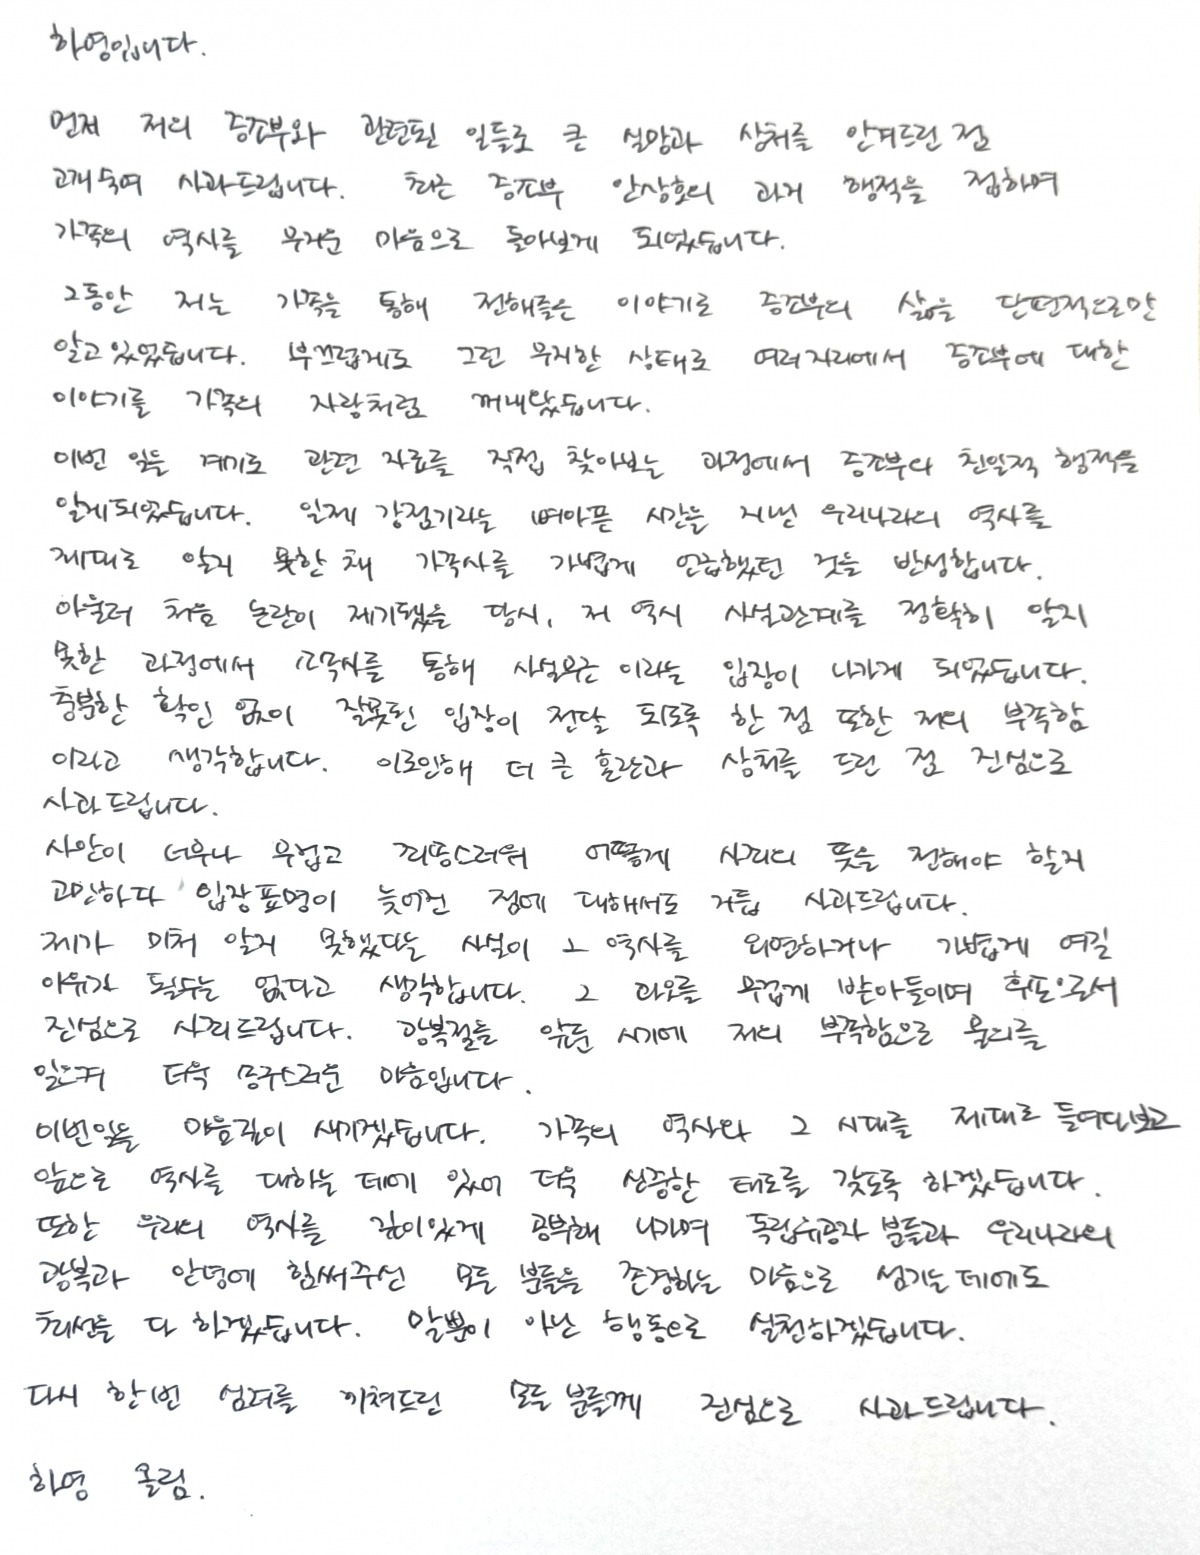 하영입니다.
먼저 저의 증조부와 관련된 일들로 큰 실망과 상처를 안겨드린 점
고개숙여 사과드립니다. 최근 증조부 안상호의 과거 행적을 접하며
가족의 역사를 무거운 마음으로 돌아보게 되었습니다.
그동안 저는 가족을 통해 전해들은 이야기로 증조부의 삶을 단편적으로만
알고있었습니다. 부끄럽게도 그런 무지한 상태로 여러자리에서 증조부에 대한
이야기를 가족의 자랑처럼 꺼내왔습니다.
이번 일을 계기로 관련 자료를 직접 찾아보는 과정에서 증조부의 친일적 행적을
알게되었습니다. 일제 강점기라는 뼈아픈 시간을 지낸 우리나라의 역사를
제대로 알지 못한 채 가족사를 가볍게 언급했던 것을 반성합니다.
아울러 처음 논란이 제기됐을 당시, 저 역시 사실관계를 정확히 알지
못한 과정에서 소속사를 통해 사실무근 이라는 입장이 나가게 되었습니다.
충분한 확인 없이 잘못된 입장이 전달 되도록 한 점 또한 저의 부족함
이라고 생각합니다. 이로인해 더 큰 혼란과 상처를 드린 점 진심으로
사과드립니다.
사안이 너무나 무겁고 죄송스러워 어떻게 사죄의 뜻을 전해야 할지
고민하다 입장표명이 늦어진 점에 대해서도 거듭 사과드립니다.
제가 미처 알지 못했다는 사실이 그 역사를 외면하거나 가볍게 여길
이유가 될수는 없다고 생각합니다. 그 과오를 무겁게 받아들이며 후손으로서
진심으로 사죄드립니다. 광복절을 앞둔 시기에 저의 부족함으로 물의를
일으켜 더욱 송구스러운 마음입니다.
이번일을 마음깊이 새기겠습니다. 가족의 역사와 그 시대를 제대로 들여다보고
앞으로 역사를 대하는 데에 있어 더욱 신중한 태도를 갖도록 하겠습니다.
또한 우리의 역사를 깊이있게 공부해 나가며 독립유공자 분들과 우리나라의
광복과 안녕에 힘써주신 모든 분들을 존경하는 마음으로 섬기는데에도
최선을 다 하겠습니다. 말뿐이 아닌 행동으로 실천하겠습니다.
다시 한번 심려를 끼쳐드린 모든분들께 진심으로 사과드립니다.
하영 올림.